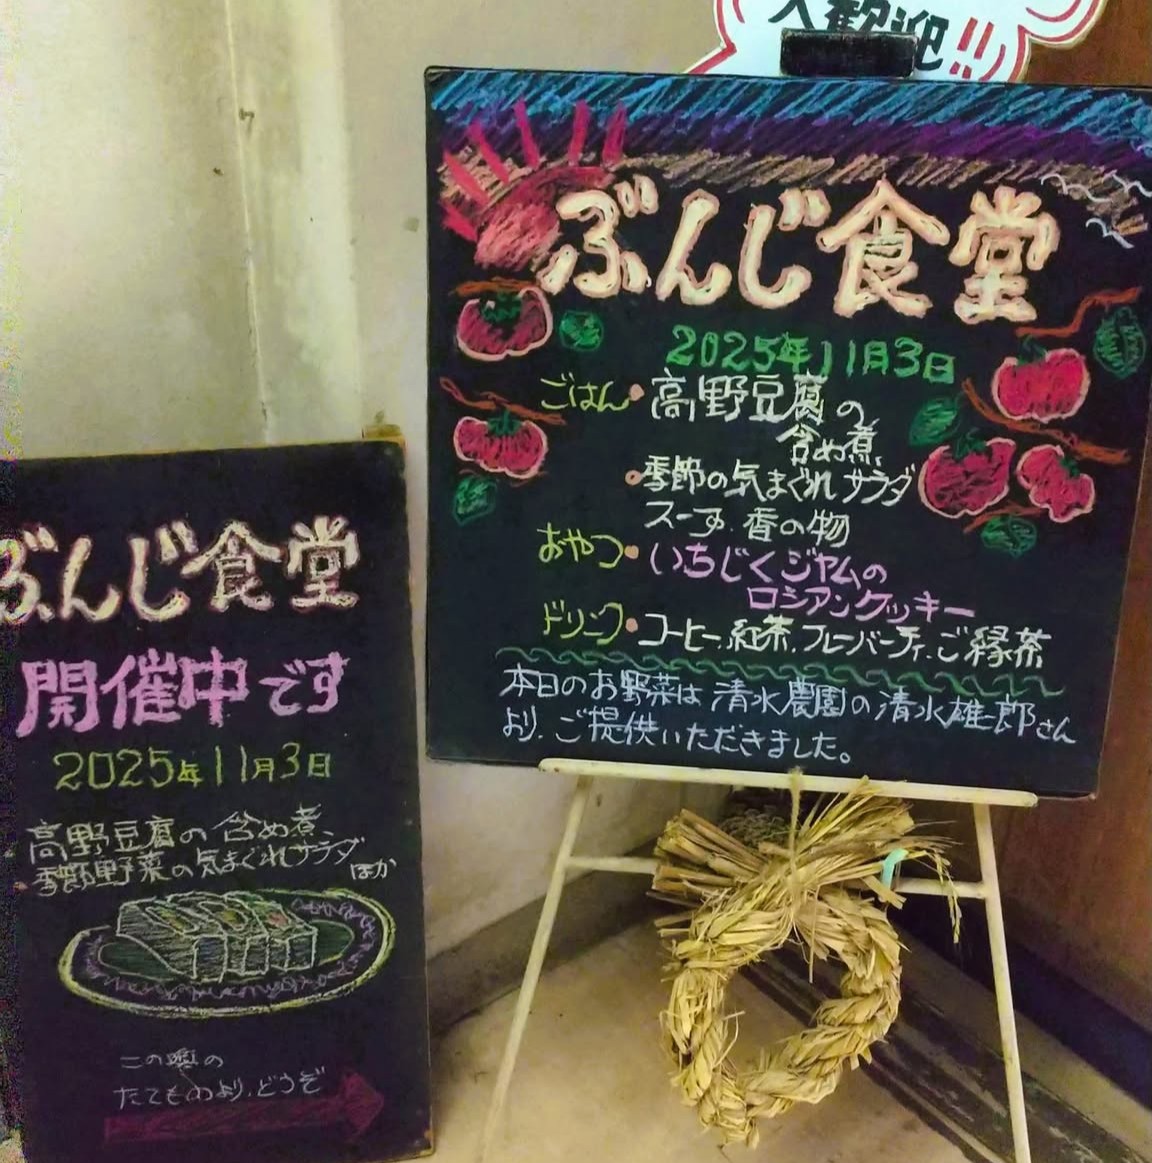 大歓迎!!
ぶんじ食堂
2025年11月3日
ごはん・高野豆腐の
含め煮
・季節の気まぐれサラダ
スープ、香の物
おやつ・いちじくジャムの
ロシアンクッキー
ドリンク・コーヒー、紅茶、フレーバーティ、ご縁茶
本日のお野菜は清水農園の清水雄一郎さん
より、ご提供いただきました。
ぶんじ食堂
開催中です
2025年11月3日
高野豆腐の含め煮
・季節野菜の気まぐれサラダ
ほか
この奥の
たてものより、どうぞ